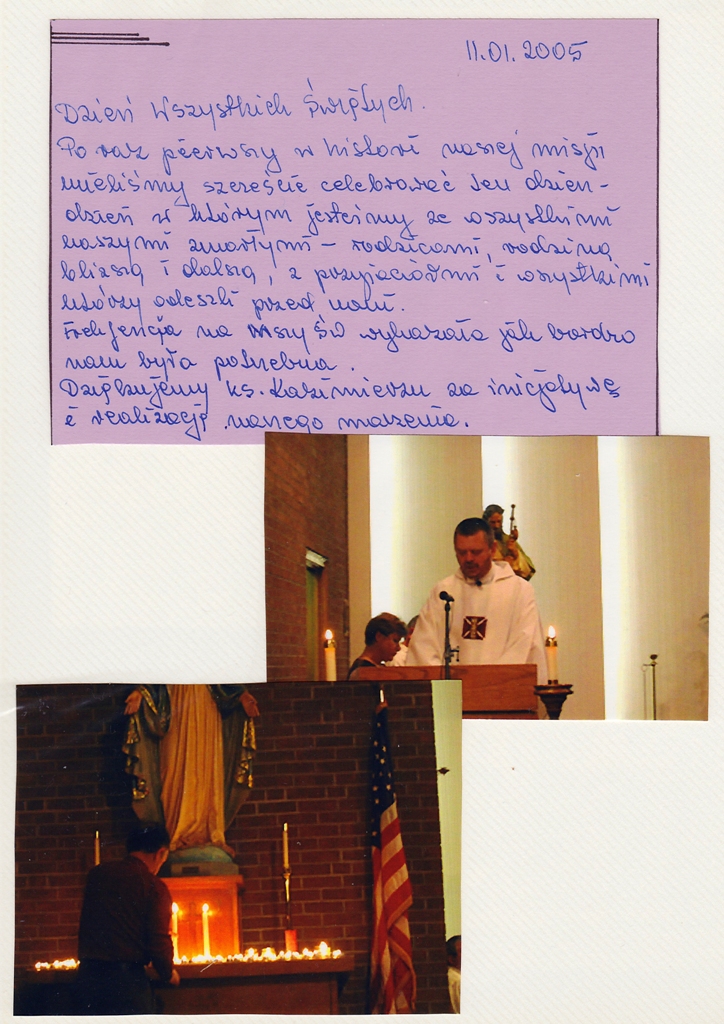 11.01.2005
Dzień Wszystkich Świętych.
Po raz pierwszy w histori naszej misji
mieliśmy szczęście celebrować ten dzień -
dzień w którym jesteśmy ze wszystkimi
naszymi zmarłymi - rodzicami, rodziną
bliższą i dalszą, z przyjaciółmi i wszystkimi
którzy odeszli przed nami.
Frekfencja na Mszy Św wykazała jak bardzo
nam była potrzebna.
Dziękujemy ks. Kazimierzu za inicjatywę
i realizację naszego marzenia.